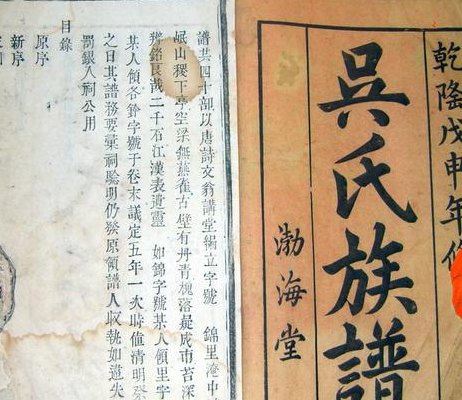 乾隆戊申年修
吳氏族譜
渤海堂
譜共四十部以唐詩文翁講堂編立字號 錦里淹中
岷山稷下亭空梁無燕雀古壁有丹青槐落疑成市苔深
辨銘良哉二千石江漢表遺靈 如錦字號某人領里字
某人領各鈐字號于卷末議定五年一次時值清明祭
之日其譜務要彙祠驗明仍發原領譜人收執如違失
罰銀入祠公用
目錄
原序
新序